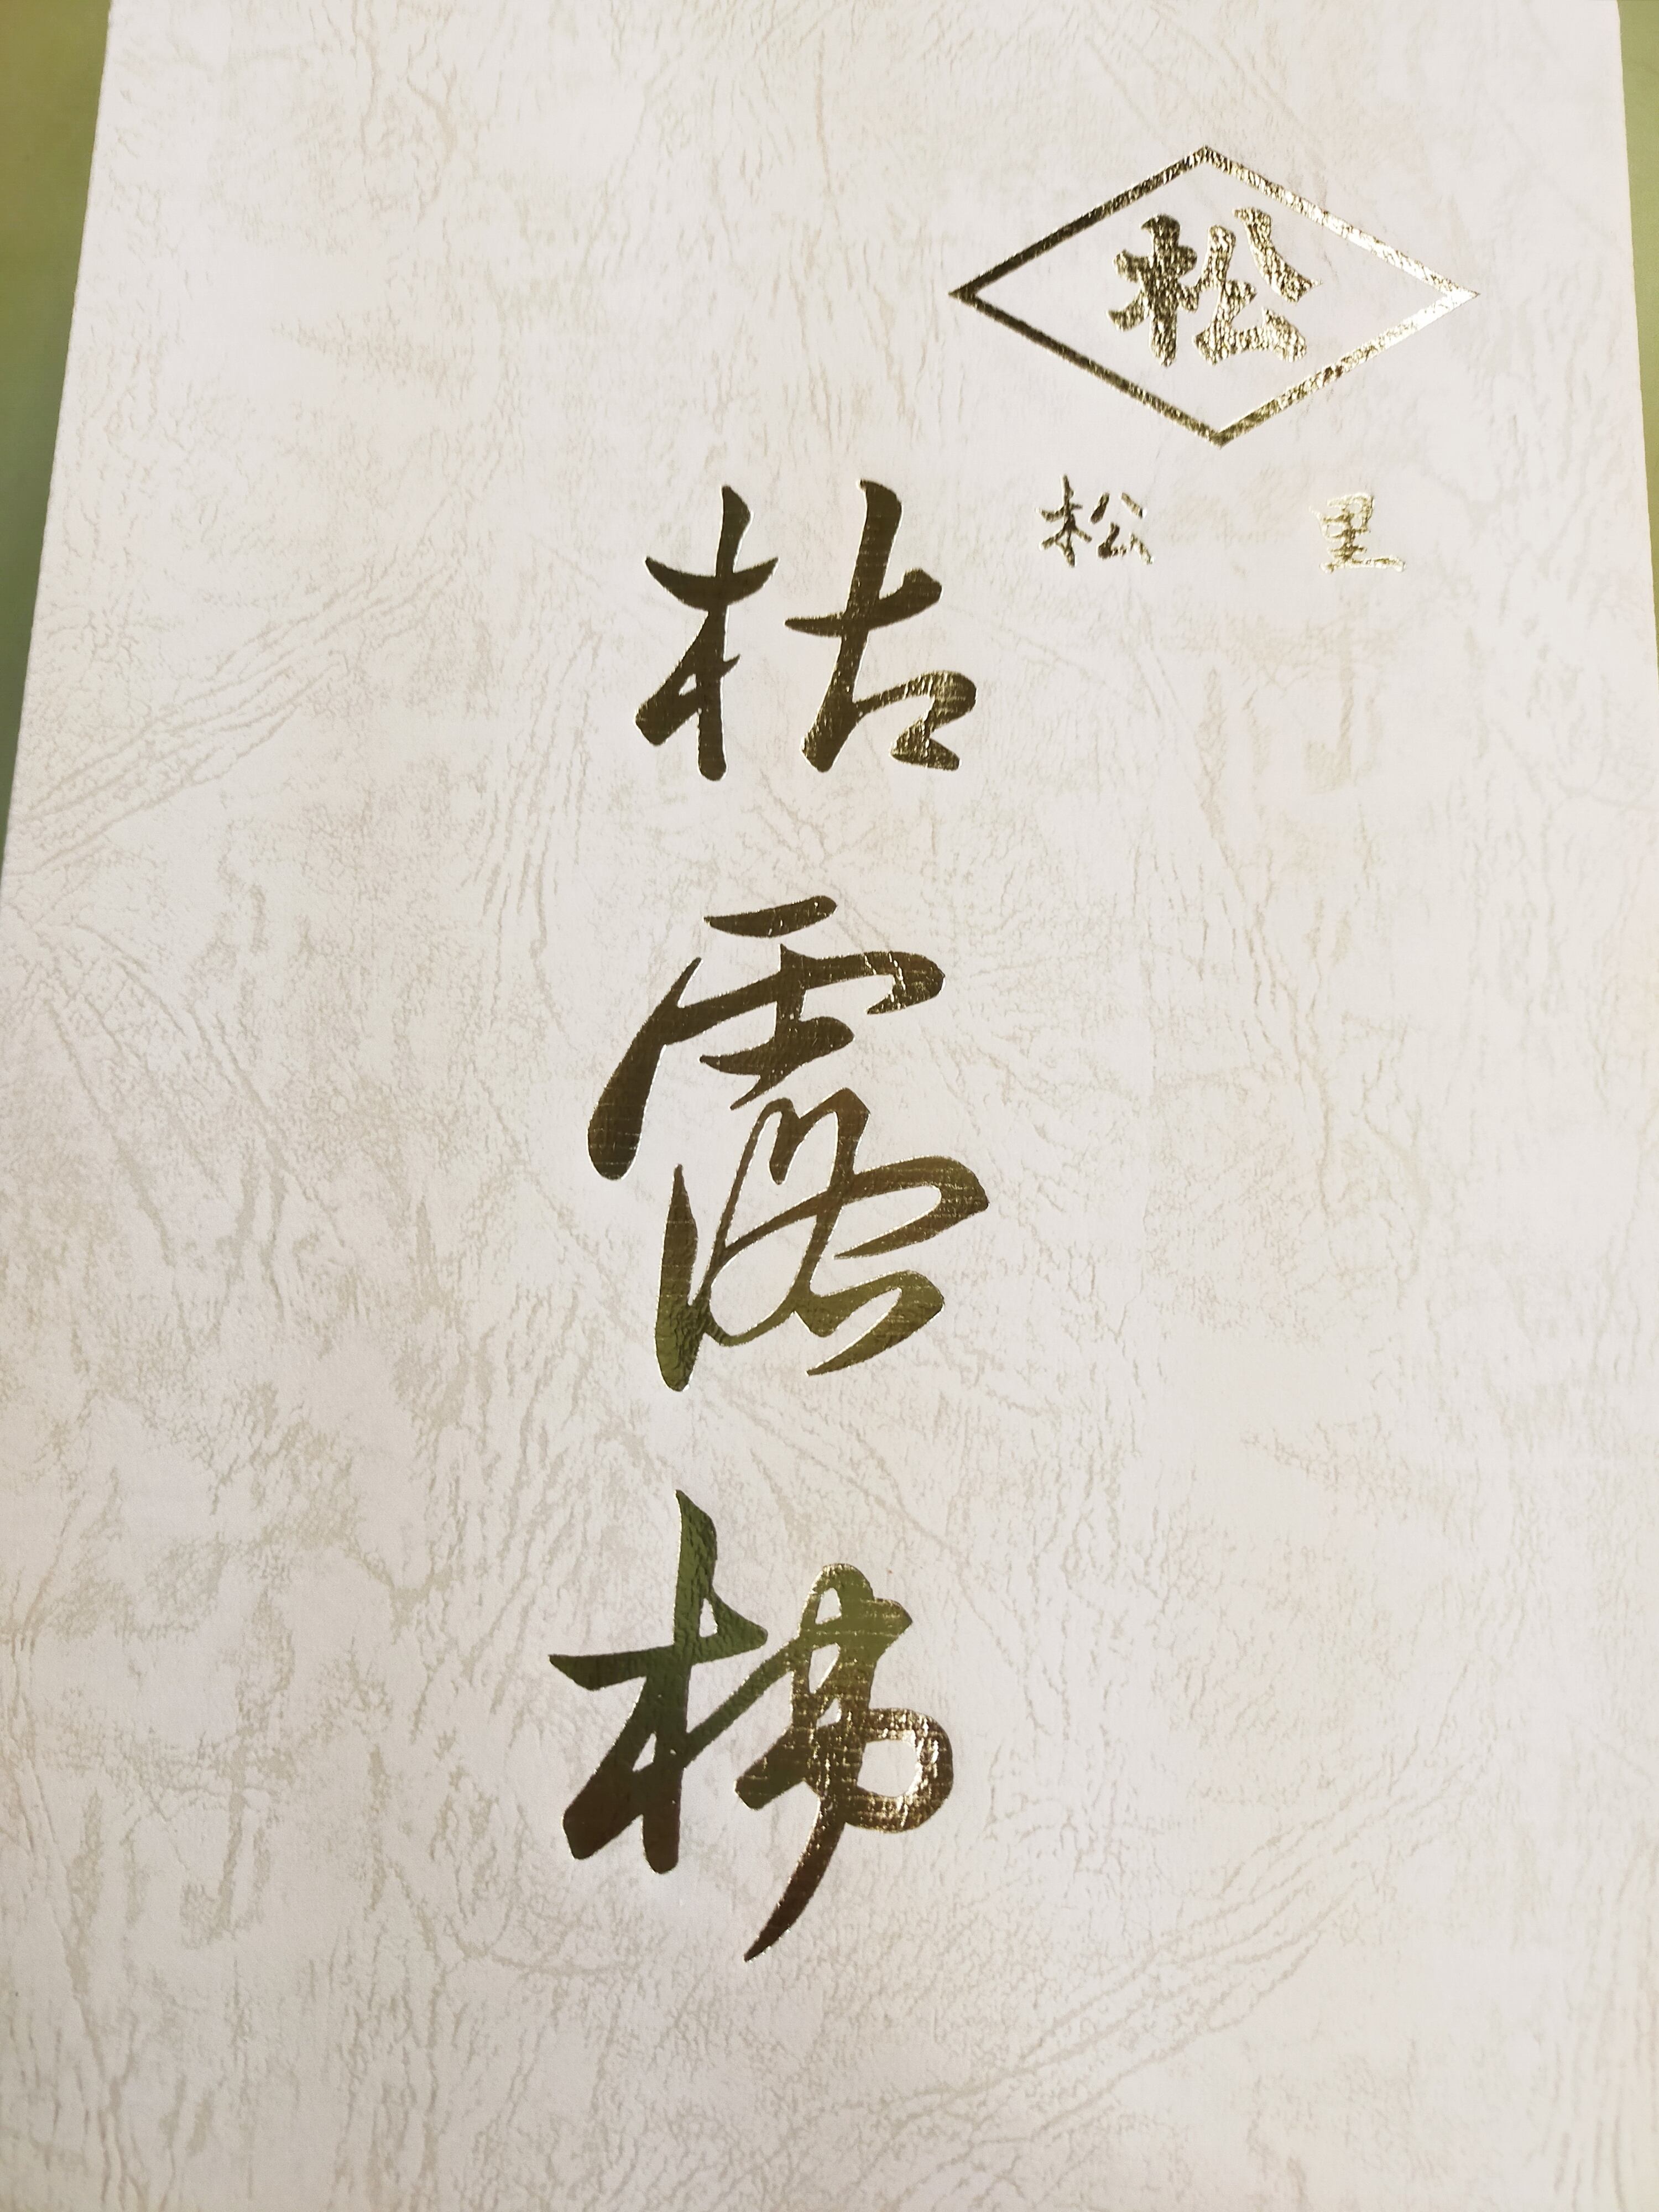 松
松里
枯露柿